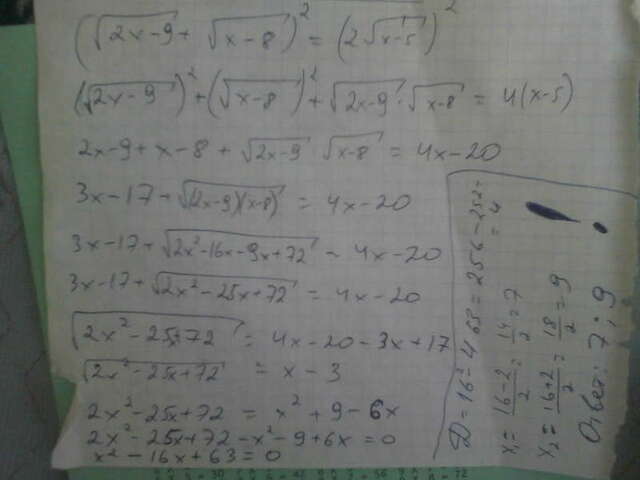 (√(2x-9) + √(x-8))² = (2√(x-5))²
(√(2x-9))² + (√(x-8))² + √(2x-9) · √(x-8) = 4(x-5)
2x-9+x-8 + √(2x-9) √(x-8) = 4x-20
3x-17 + √((2x-9)(x-8)) = 4x-20
3x-17 + √(2x²-16x-9x+72) = 4x-20
3x-17 + √(2x²-25x+72) = 4x-20
√(2x²-25x+72) = 4x-20-3x+17
√(2x²-25x+72) = x-3
2x²-25x+72 = x²+9-6x
2x²-25x+72-x²-9+6x=0
x²-16x+63=0
D=16²-4·63=256-252=
=4
x₁= (16-2)/2 = 14/2 = 7
x₂= (16+2)/2 = 18/2 = 9
Ответ: 7; 9